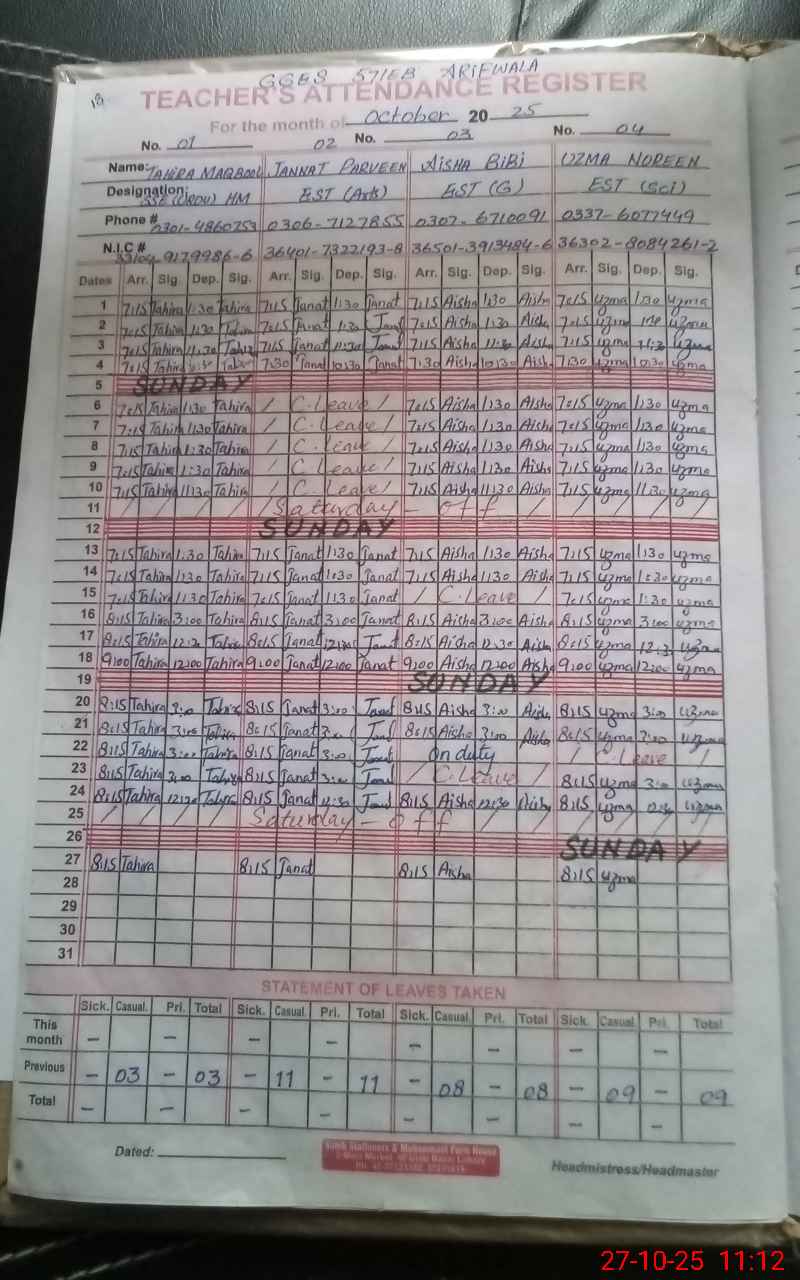 GGES 57/EB ARIFWALA
TEACHER'S ATTENDANCE REGISTER
For the month of October 20 25
No. 01 02 No. 03 No. 04
Name: TAHIRA MAQBOOL JANNAT PARVEEN AISHA BIBI UZMA NOREEN
Designation: SSE (URDU) HM EST (Arts) EST (G) EST (Sci)
Phone # 0301-4860753 0306-7127855 0307-6710091 0337-6077449
N.I.C # 33104-9179986-6 36401-7322193-8 36501-3913484-6 36302-8084261-2
Dates Arr. Sig. Dep. Sig. Arr. Sig. Dep. Sig. Arr. Sig. Dep. Sig. Arr. Sig. Dep. Sig.
1 7:15 Tahira 1:30 Tahira 7:15 Janat 1:30 Janat 7:15 Aisha 1:30 Aisha 7:15 uzma 1:30 uzma
2 7:15 Tahira 1:30 Tahira 7:15 Janat 1:30 Janat 7:15 Aisha 1:30 Aisha 7:15 uzma uzma
3 7:15 Tahira 11:30 Tahira 7:15 Janat 11:30 Janat 7:15 Aisha 11:30 Aisha 7:15 uzma 11:30 uzma
4 7:15 Tahira Tahira 7:30 Janat 10:30 Janat 7:30 Aisha 10:30 Aisha 7:30 uzma 10:30 uzma
5 SUNDAY
6 7:15 Tahira 1:30 Tahira / C.Leave / 7:15 Aisha 1:30 Aisha 7:15 uzma 1:30 uzma
7 7:15 Tahira 1:30 Tahira / C.Leave / 7:15 Aisha 1:30 Aisha 7:15 uzma 1:30 uzma
8 7:15 Tahira 1:30 Tahira / C.Leave / 7:15 Aisha 1:30 Aisha 7:15 uzma 1:30 uzma
9 7:15 Tahira 1:30 Tahira / C.Leave / 7:15 Aisha 1:30 Aisha 7:15 uzma 1:30 uzma
10 7:15 Tahira 11:30 Tahira / C.Leave / 7:15 Aisha 11:30 Aisha 7:15 uzma 11:30 uzma
11 / / / / / Saturday - off / / / / /
12 SUNDAY
13 7:15 Tahira 1:30 Tahira 7:15 Janat 1:30 Janat 7:15 Aisha 1:30 Aisha 7:15 uzma 1:30 uzma
14 7:15 Tahira 1:30 Tahira 7:15 Janat 1:30 Janat 7:15 Aisha 1:30 Aisha 7:15 uzma 1:30 uzma
15 7:15 Tahira 1:30 Tahira 7:15 Janat 1:30 Janat / C.Leave / 7:15 uzma 1:30 uzma
16 8:15 Tahira 3:00 Tahira 8:15 Janat 3:00 Janat 8:15 Aisha 3:00 Aisha 8:15 uzma 3:00 uzma
17 8:15 Tahira 12:30 Tahira 8:15 Janat 12:30 Janat 8:15 Aisha 12:30 Aisha 8:15 uzma 12:30 uzma
18 9:00 Tahira 12:00 Tahira 9:00 Janat 12:00 Janat 9:00 Aisha 12:00 Aisha 9:00 uzma 12:00 uzma
19 SUNDAY
20 8:15 Tahira 3:00 Tahira 8:15 Janat 3:00 Janat 8:15 Aisha 3:00 Aisha 8:15 uzma 3:00 uzma
21 8:15 Tahira 3:00 Tahira 8:15 Janat 3:00 Janat 8:15 Aisha 3:00 Aisha 8:15 uzma 3:00 uzma
22 8:15 Tahira 3:00 Tahira 8:15 Janat 3:00 Janat on duty / C.Leave /
23 8:15 Tahira 3:00 Tahira 8:15 Janat 3:00 Janat / C.Leave / 8:15 uzma 3:00 uzma
24 8:15 Tahira 12:30 Tahira 8:15 Janat 12:30 Janat 8:15 Aisha 12:30 Aisha 8:15 uzma 12:30 uzma
25 / / / / Saturday - off / / / / /
26 SUNDAY
27 8:15 Tahira 8:15 Janat 8:15 Aisha 8:15 uzma
28
29
30
31
STATEMENT OF LEAVES TAKEN
Sick. Casual. Pri. Total Sick. Casual. Pri. Total Sick. Casual. Pri. Total Sick. Casual. Pri. Total
This month – – – – – – – –
Previous – 03 – 03 – 11 – 11 – 08 – 08 – 09 – 09
Total – – – – – – – –
Dated:
Headmistress/Headmaster
27-10-25 11:12